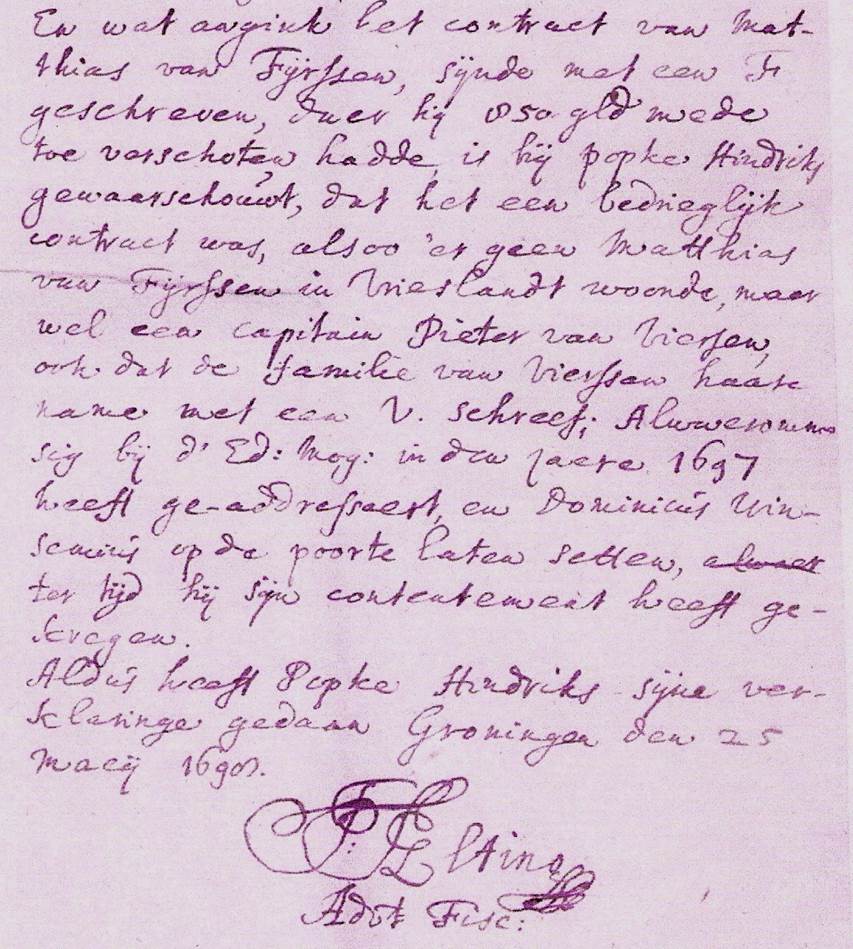 En wat aagink het contract van Mat-
thias van Fÿrssen, sÿnde met een F
geschreven, daer hÿ 850 gld mede
toe verschoten hadde, is bÿ popke Hindriks
gewaarschouwt, dat het een bedrieglÿk
contract was, alsoo 'er geen Matthias
van Fÿrssen in Vrieslandt woonde, maer
wel een capitain Pieter van Vierssen,
ook dat de familie van Vierssen haare
name met een V. schreef; Alwaerom
sig bÿ d' Ed: Mog: in den jaere 1697
heeft ge-addresseert, en Dominicus Win-
semius op de poorte laten setten, alwaer
ter tÿd hÿ sÿn contentement heeft ge-
kregen.
Aldus heeft Popke Hindriks sÿne ver-
klaringe gedaan Groningen den 25
Maeÿ
Eltino
Advt. Fisc: